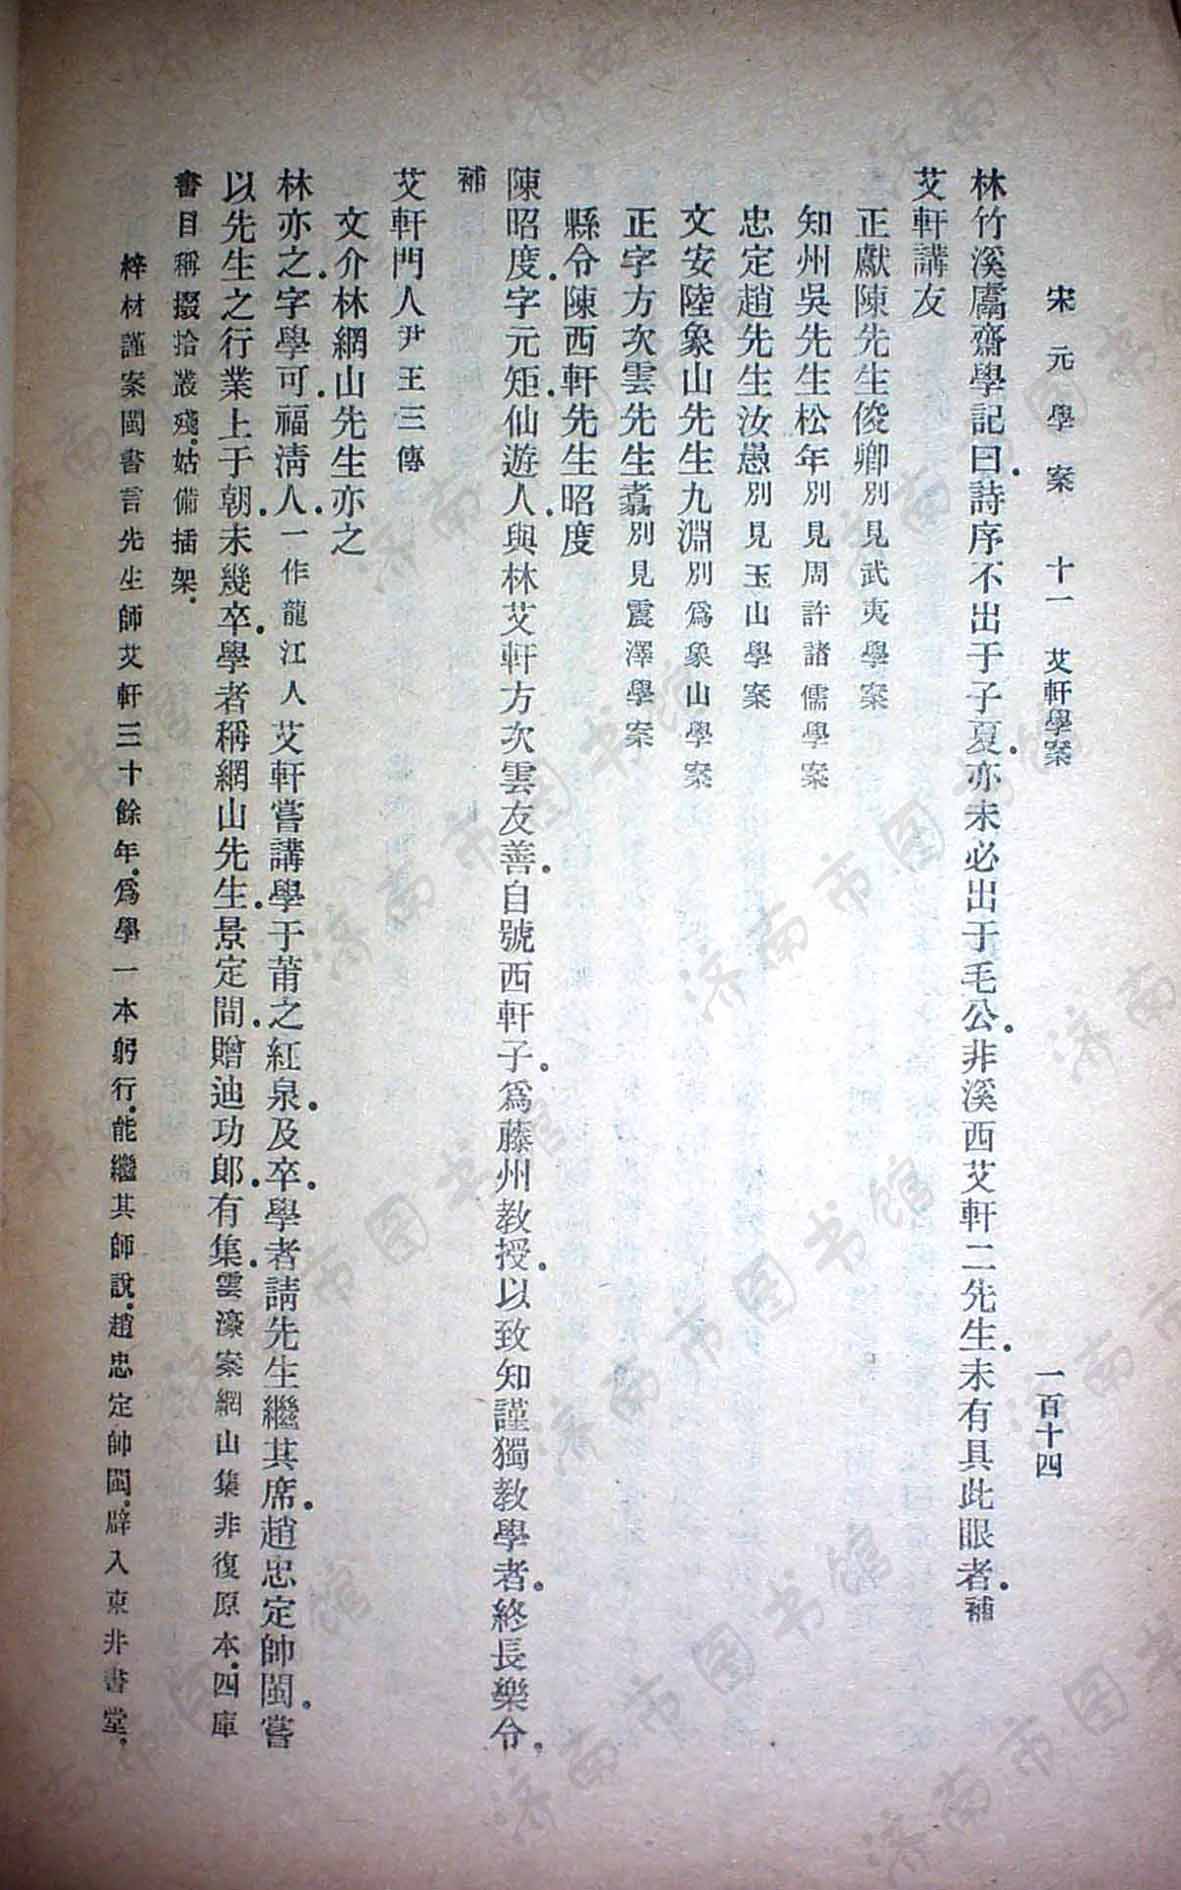 宋元學案 十一 艾軒學案 一百十四
林竹溪鬳齋學記曰.詩序不出于子夏.亦未必出于毛公.非溪西艾軒二先生.未有具此眼者.補
艾軒講友
正獻陳先生俊卿別見武夷學案
知州吳先生松年別見周許諸儒學案
忠定趙先生汝愚別見玉山學案
文安陸象山先生九淵別爲象山學案
正字方次雲先生翥別見震澤學案
縣令陳西軒先生昭度
陳昭度.字元矩.仙遊人.與林艾軒方次雲友善.自號西軒子.爲藤州教授.以致知謹獨教學者.終長樂令.
補
艾軒門人尹王三傳
文介林網山先生亦之
林亦之.字學可.福淸人.一作龍江人艾軒嘗講學于莆之紅泉.及卒.學者請先生繼其席.趙忠定帥閩.嘗
以先生之行業上于朝.未幾卒.學者稱網山先生.景定間.贈迪功郎.有集.雲濠案網山集非復原本.四庫
書目稱掇拾叢殘.姑備插架.
梓材謹案閩書言先生師艾軒三十餘年.爲學一本躬行.能繼其師說.趙忠定帥閩.辟入東井書堂.
济南市图书馆